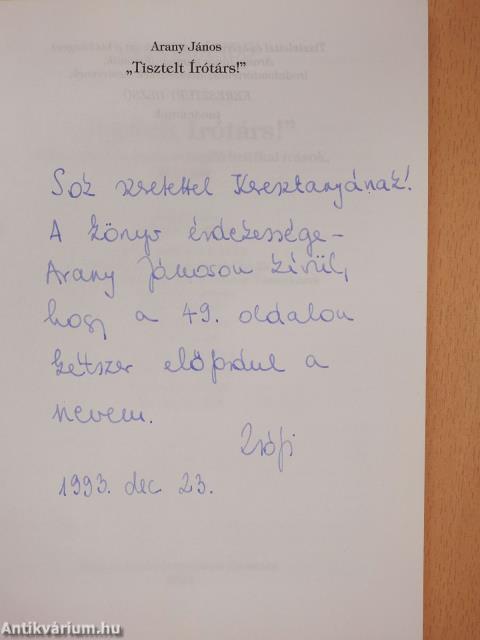 Arany János
„Tisztelt Írótárs!”
Sok szeretettel Keresztanyának!
A könyv érdekessége –
Arany Jánoson kívül,
hogy a 49. oldalon
kétszer előfordul a
nevem.
Zsófi
1993. dec 23.
Antikvárium.hu